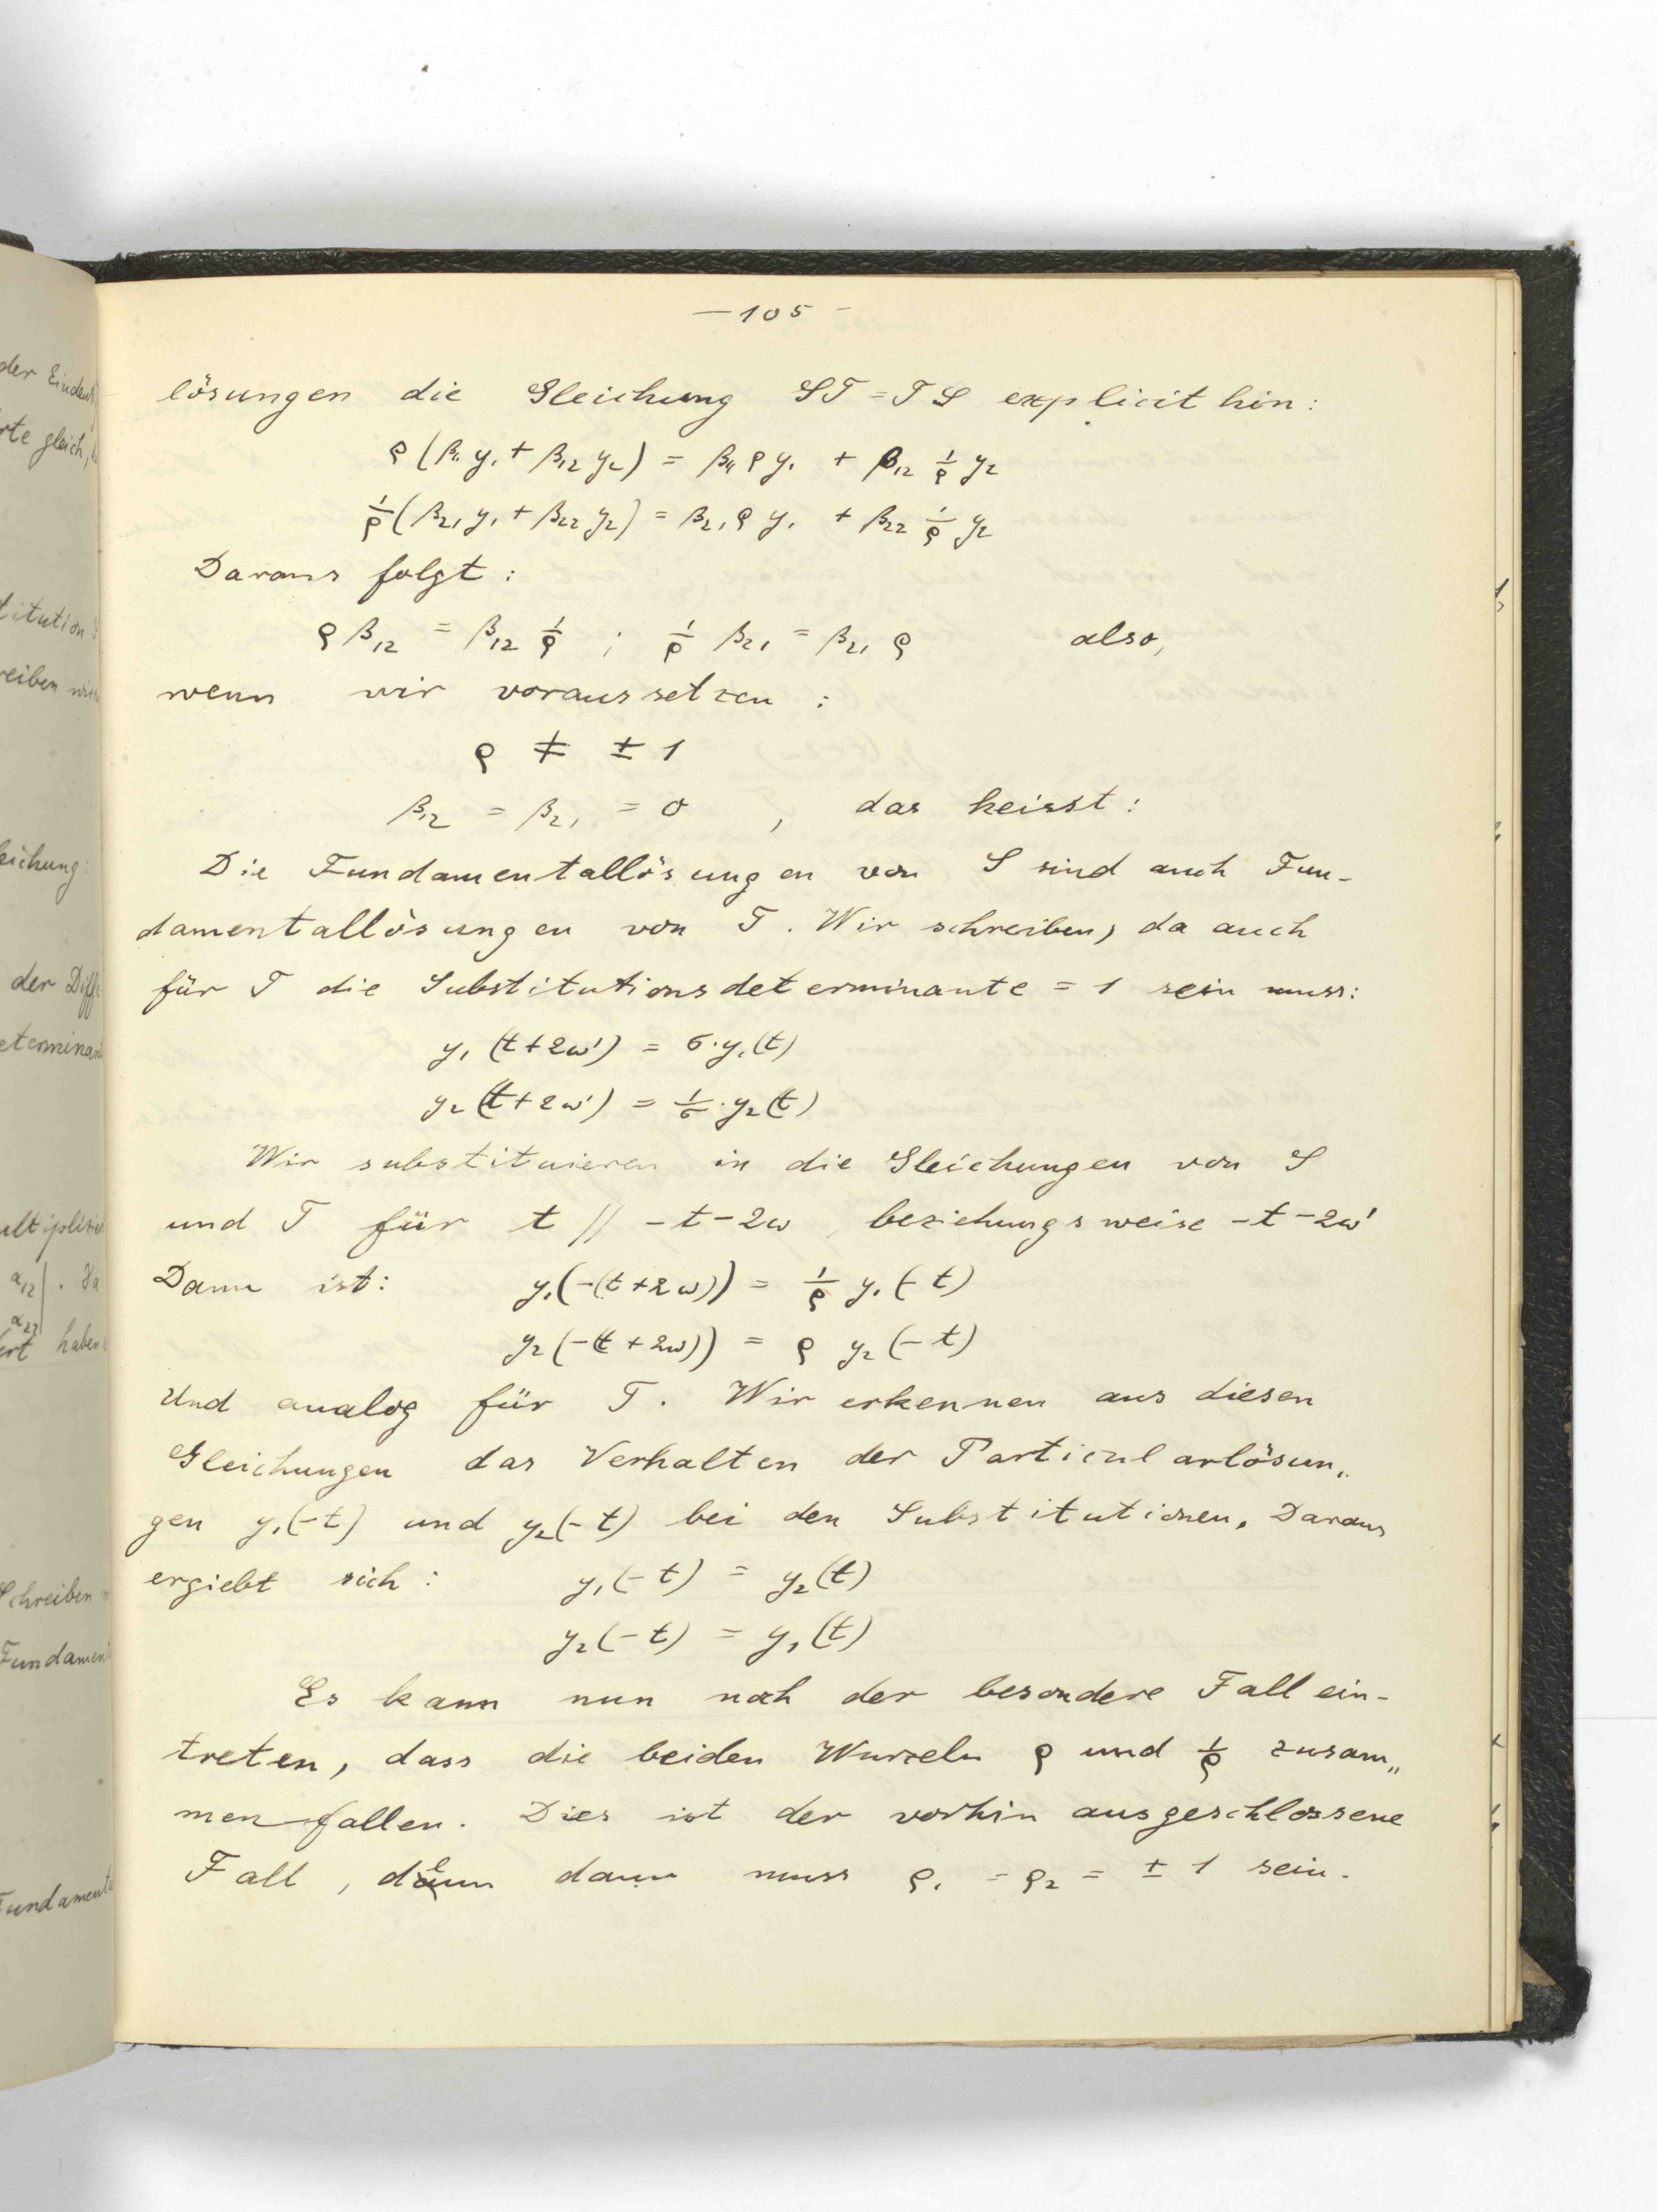 — 105 —
lösungen die Gleichung ST = TS explicit hin:
ρ(β₁₁ y₁ + β₁₂ y₂) = β₁₁ ρ y₁ + β₁₂ 1/ρ y₂
1/ρ(β₂₁ y₁ + β₂₂ y₂) = β₂₁ ρ y₁ + β₂₂ 1/ρ y₂
Daraus folgt:
ρ β₁₂ = β₁₂ 1/ρ ; 1/ρ β₂₁ = β₂₁ ρ also,
wenn wir voraussetzen:
ρ ≠ ± 1
β₁₂ = β₂₁ = 0 , das heisst:
Die Fundamentallösungen von S sind auch Fun-
damentallösungen von T. Wir schreiben, da auch
für T die Substitutionsdeterminante = 1 sein muss:
y₁ (t+2ω') = σ·y₁(t)
y₂ (t+2ω') = 1/σ·y₂(t)
Wir substituieren in die Gleichungen von S
und T für t // -t-2ω, beziehungsweise -t-2ω'
Dann ist: y₁(-(t+2ω)) = 1/ρ y₁(-t)
y₂(-(t+2ω)) = ρ y₂(-t)
Und analog für T. Wir erkennen aus diesen
Gleichungen das Verhalten der Particularlösun„
gen y₁(-t) und y₂(-t) bei den Substitutionen. Daraus
ergiebt sich: y₁(-t) = y₂(t)
y₂(-t) = y₁(t)
Es kann nun noch der besondere Fall ein-
treten, dass die beiden Wurzeln ρ und 1/ρ zusam„
menfallen. Dies ist der vorhin ausgeschlossene
Fall, denn dann muss ρ₁ = ρ₂ = ± 1 sein.
der
rte gleich,
titution
reiben
eichung:
der Diff
eterminan
ultiplizi
a₁₂ | . Ha
a₂₂ |
ert haben
Schreiben
Fundamen
Fundamenta